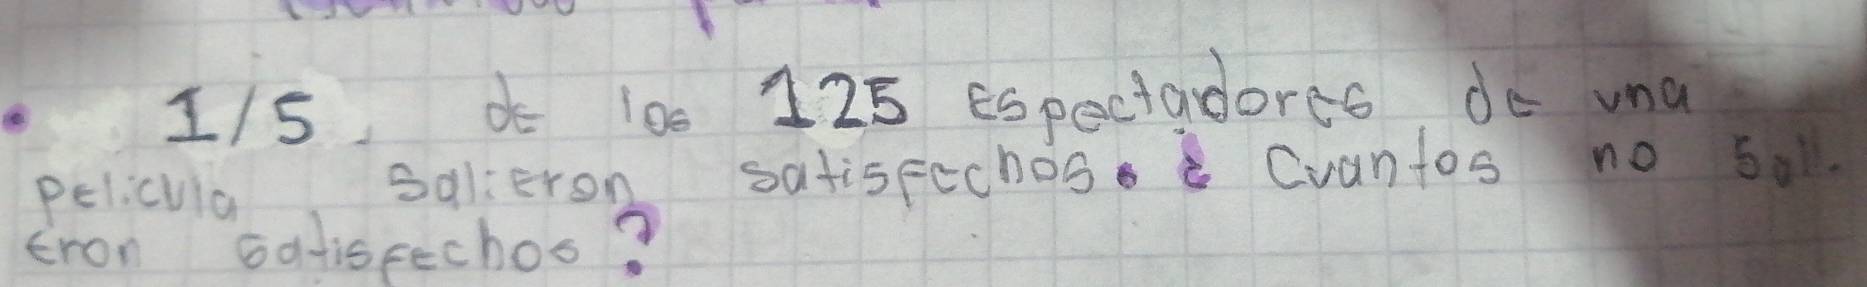 1/5. de los 125 Espectadores de una
película salieron satisfechos. ¿ Cuantos no sali-
eron satisfechos?